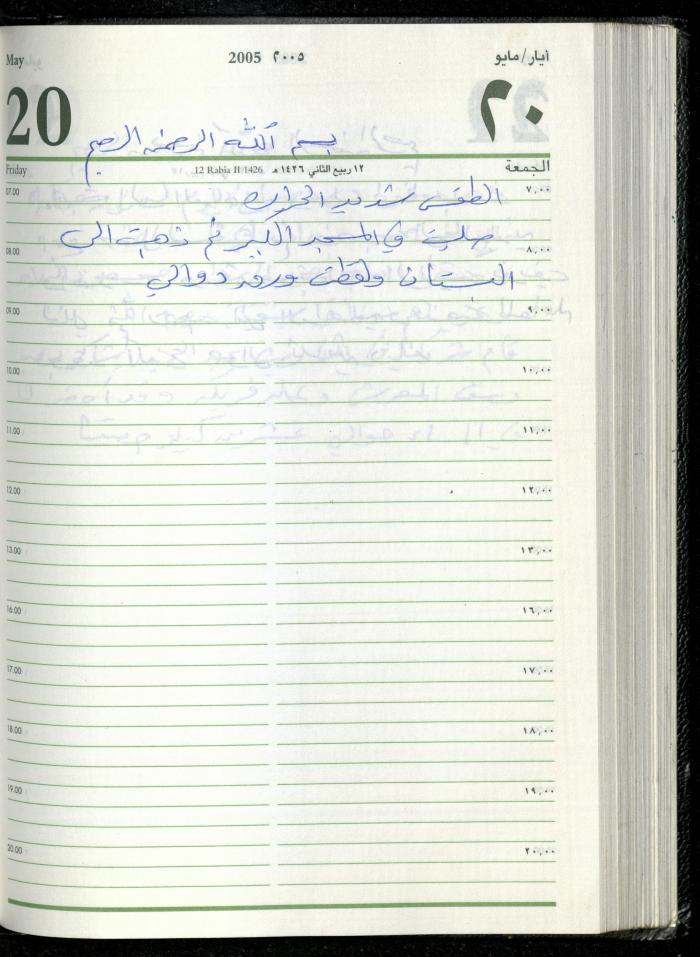 May 2005 ٢٠٠٥ أيار/مايو
20 ٢٠
بسم الله الرحمن الرحيم
Friday 12 Rabia II 1426 ١٢ ربيع الثاني ١٤٢٦ هـ الجمعة
07.00 ٧,٠٠
الطقس شديد الحرارة
صليت في المسجد الكبير ثم ذهبت الى
08.00 ٨,٠٠
البستان ولقطت ورق دوالي
09.00 ٩,٠٠
10.00 ١٠,٠٠
11.00 ١١,٠٠
12.00 ١٢,٠٠
13.00 ١٣,٠٠
16.00 ١٦,٠٠
17.00 ١٧,٠٠
18.00 ١٨,٠٠
19.00 ١٩,٠٠
20.00 ٢٠,٠٠